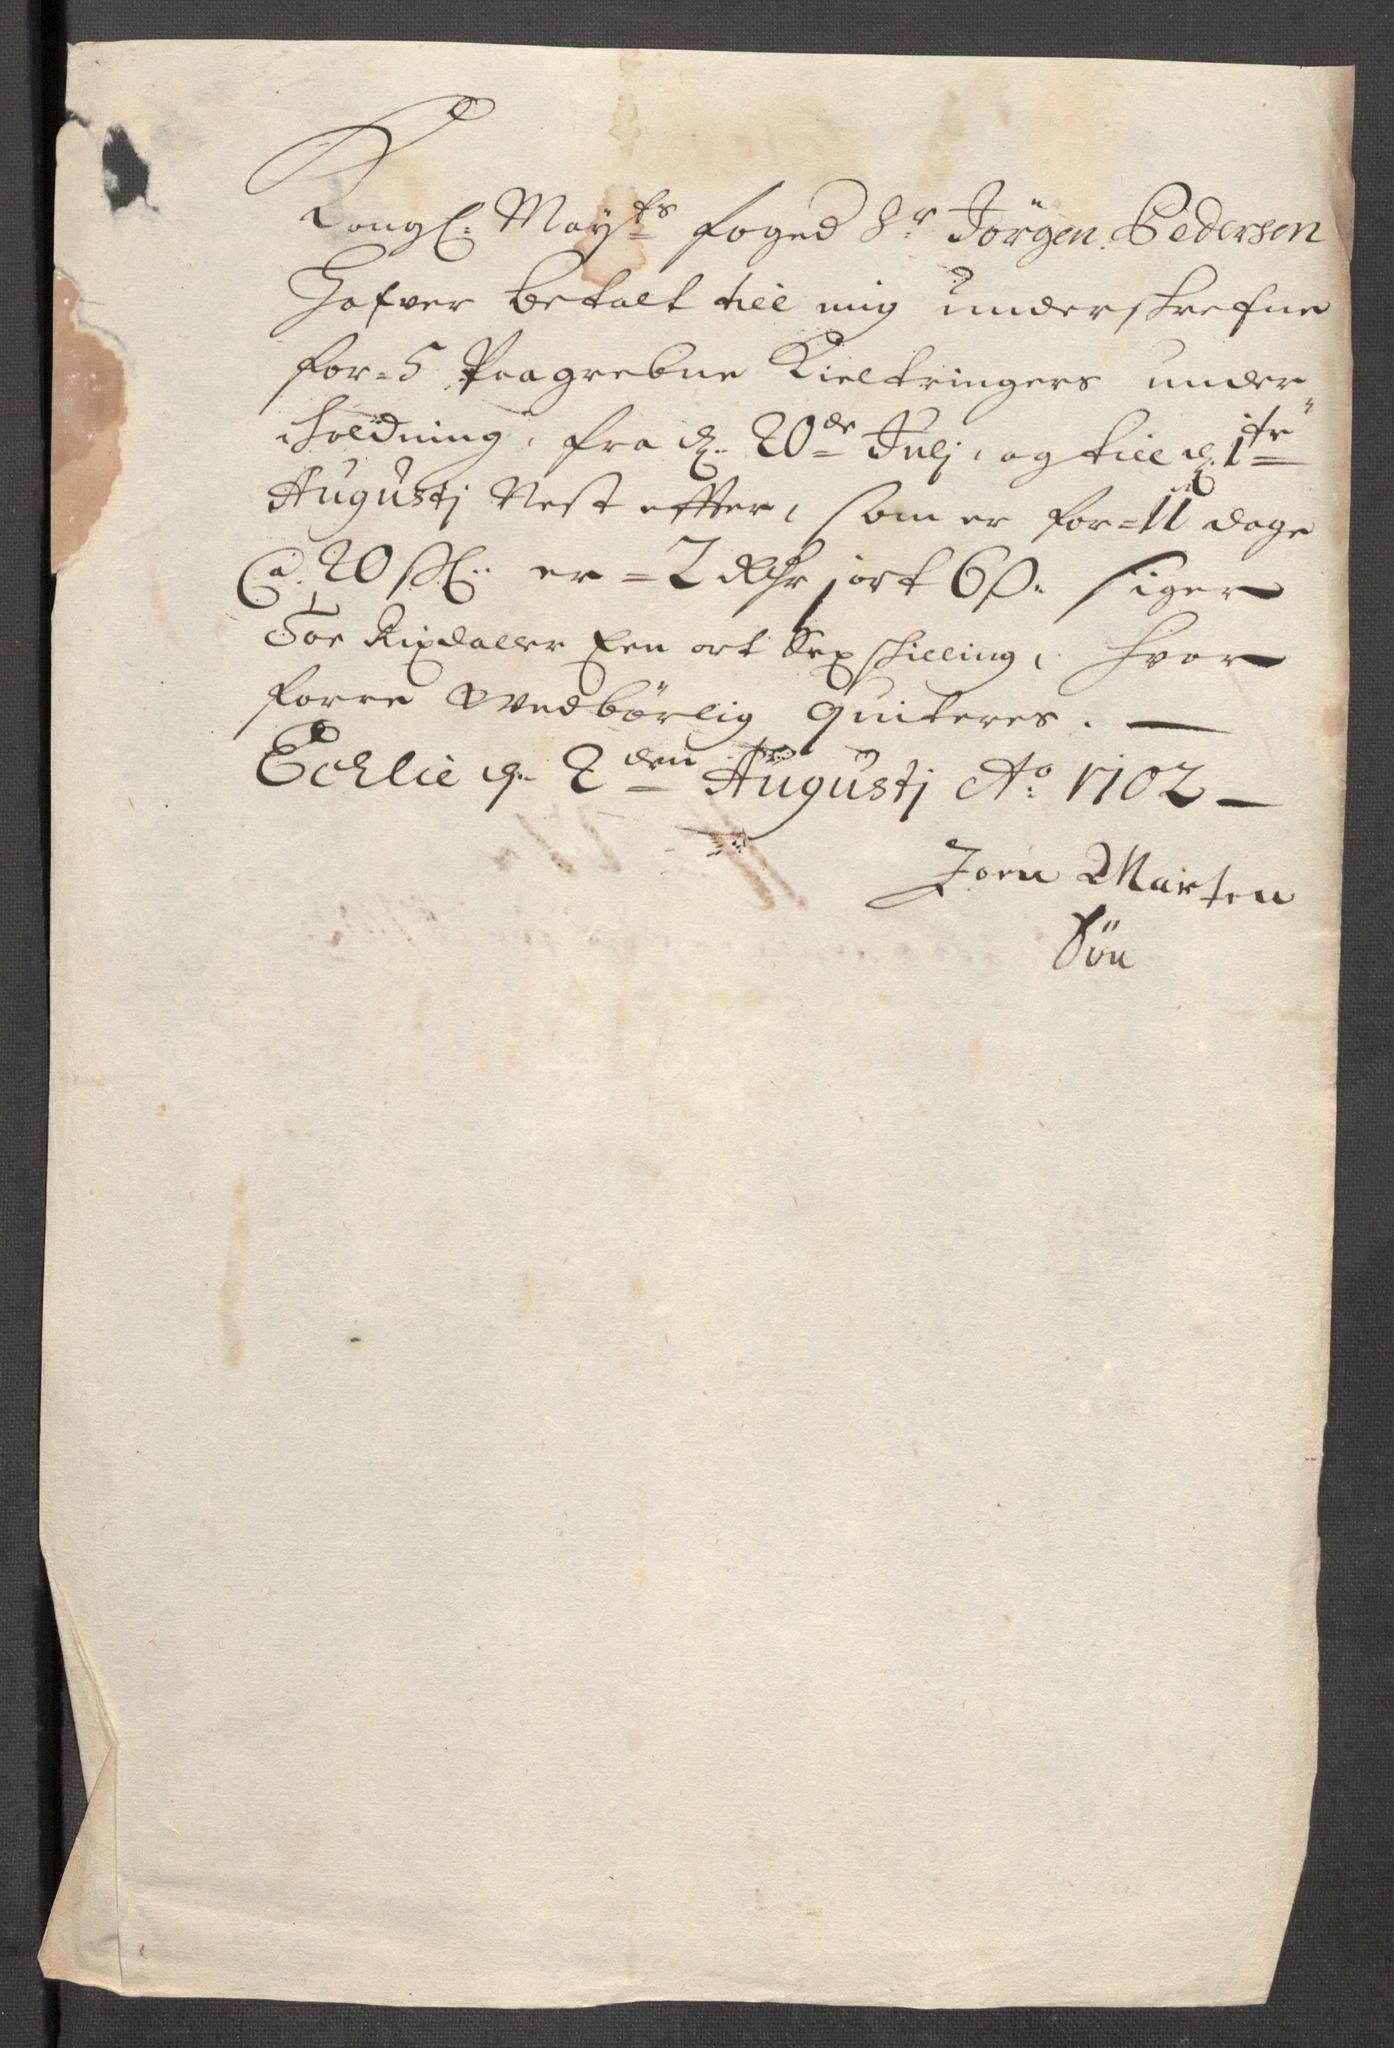 Kongl: Mayts foged Sr Jörgen Pedersen
Hafver betalt till mig underskrefne
for=5 Paagrebne Kieltringers under
holdning, fra d. 20de Julj, og till d. 1te
Augustj Nest effter, som er for=11 dage
a 20 sk: er =2 Rdr 1 ort 6 s. siger
Toe Rixdaller Een ort Sex skilling, hvor
forre Vedbörlig quiteres. —
Echlie d. 2den Augustj Ao 1702 —
Joen Marten
Sön